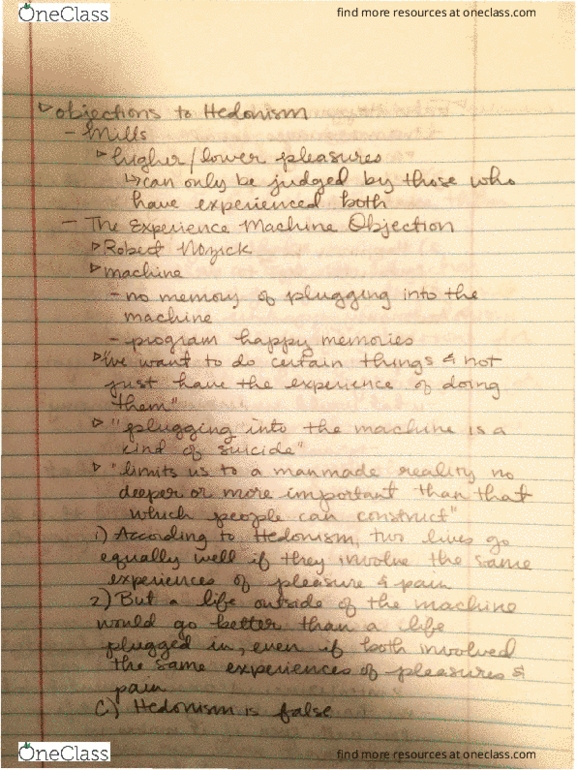 OneClass
find more resources at oneclass.com
▹ objections to Hedonism
- Mills
▹ higher/lower pleasures
↳ can only be judged by those who
have experienced both
- The Experience Machine Objection
▹ Robert Nozick
▹ machine
- no memory of plugging into the
machine
- program happy memories
▹ "we want to do certain things & not
just have the experience of doing
them"
▹ "plugging into the machine is a
kind of suicide"
▹ "limits us to a manmade reality no
deeper or more important than that
which people can construct"
1) According to Hedonism, two lives go
equally well if they involve the same
experiences of pleasure & pain
2) But a life outside of the machine
would go better than a life
plugged in, even if both involved
the same experiences of pleasures &
pain
C) Hedonism is false
OneClass
find more resources at oneclass.com